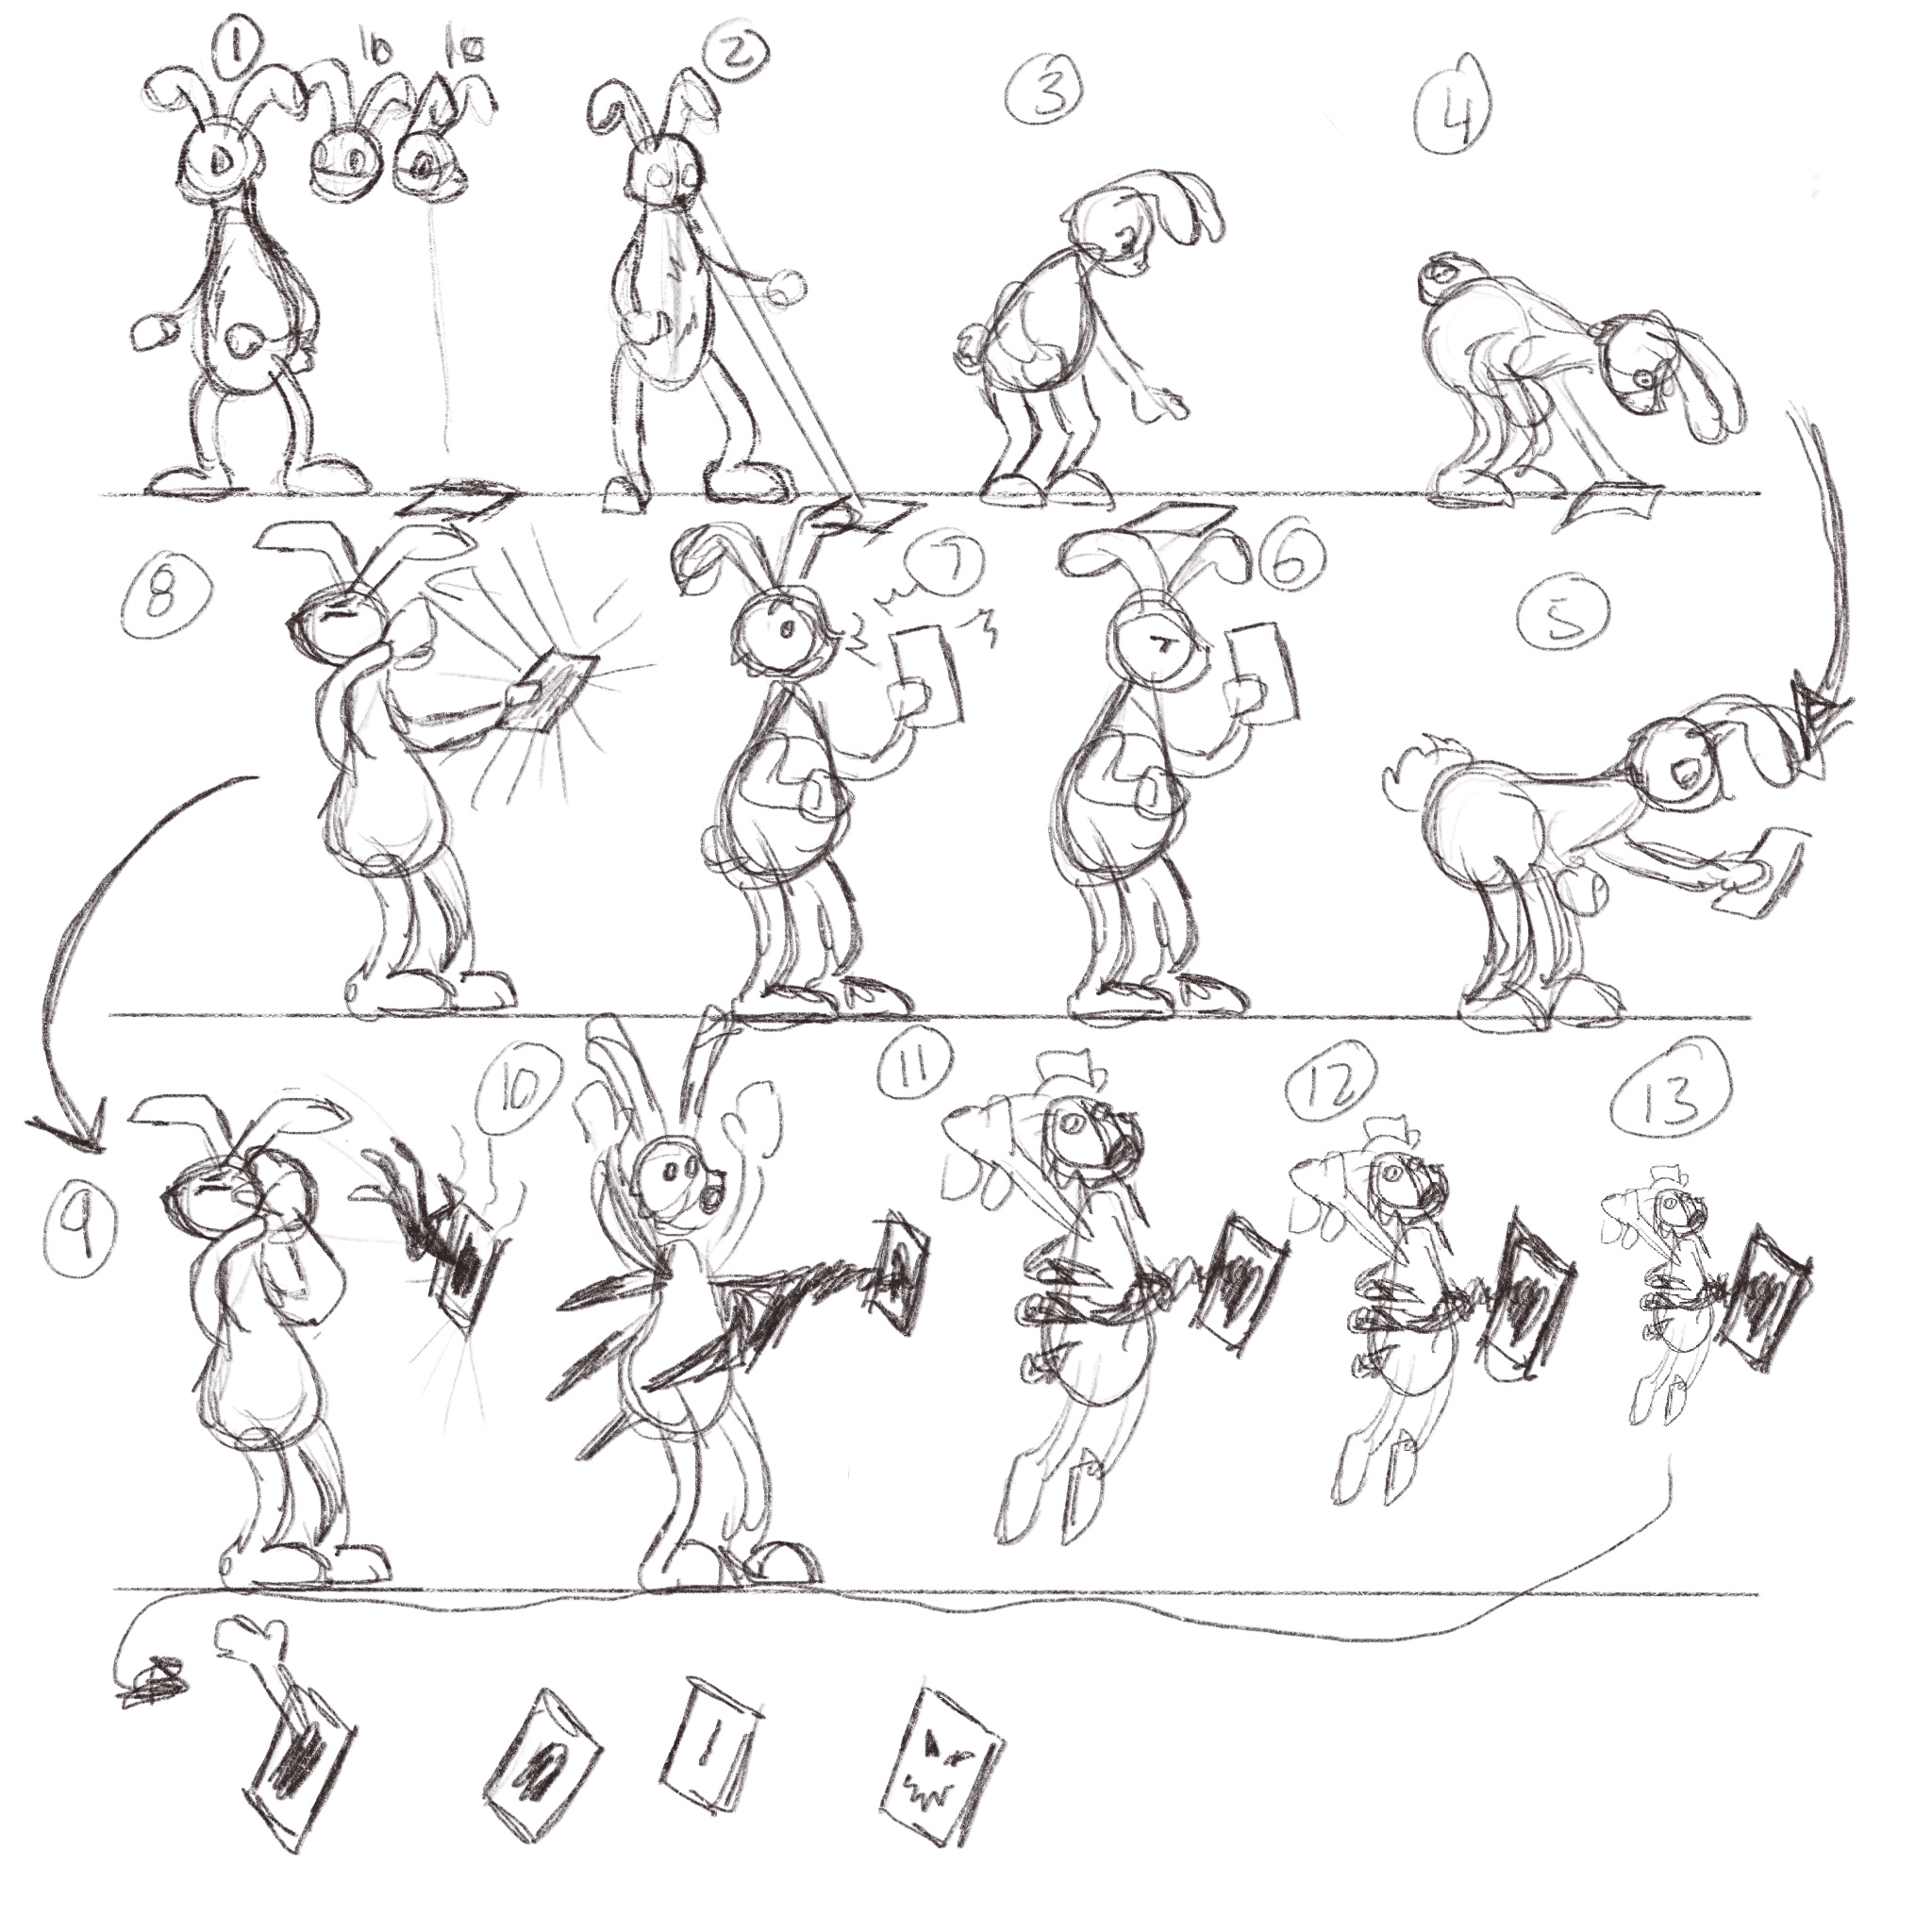 1 1b 1c 2 3 4
8 7 6 5
9 10 11 12 13